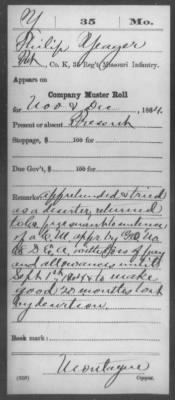 Y | 35 | Mo.
Philip Yeager
Pvt, Co. K, 35 Reg't Missouri Infantry.
Appears on
Company Muster Roll
for Nov & Dec, 1864.
Present or absent Present
Stoppage, $ 100 for
Due Gov't, $ 100 for
Remarks: apprehended & tried
as a deserter, returned
to Co. per sentence
of a C. M. appr. by G.O. No.
with loss of pay
and allowances until
Sept 1st 1864 & to make
good 20 months lost
by desertion.
Book mark:
Montague
(358) Copyist.